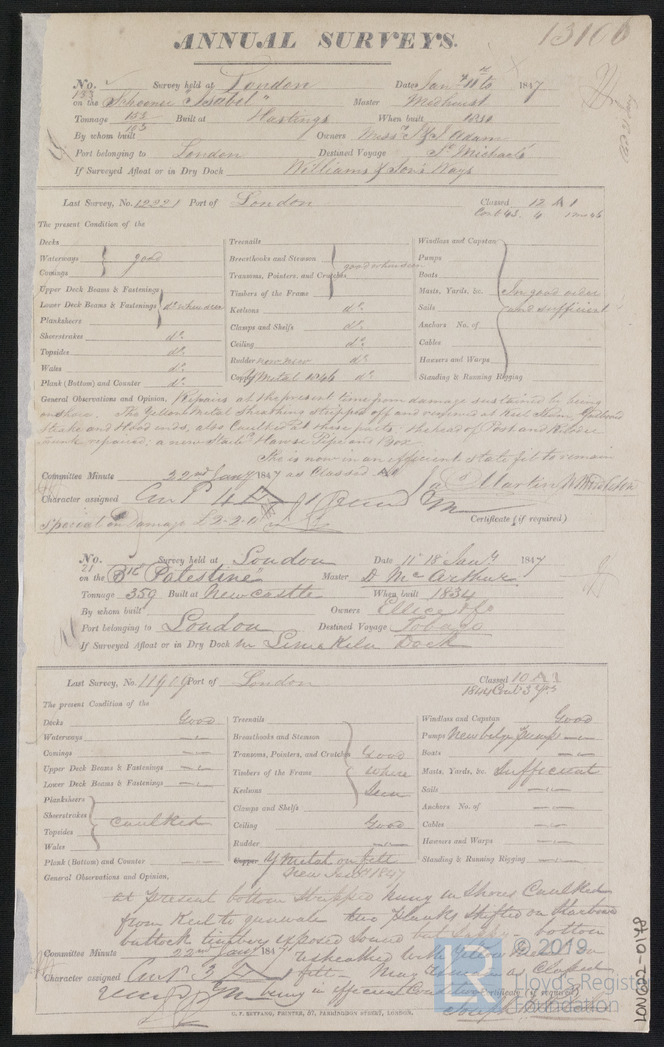 13106
ANNUAL SURVEYS.
No. 183 Survey held at London Date Jany 11th 1847
on the Schooner "Isabel" Master Medhurst
Tonnage 153 153 Built at Hastings When built 1830
By whom built Owners Messrs Adam
Port belonging to London Destined Voyage St Michaels
If Surveyed Afloat or in Dry Dock Williams & Sons Ways
Last Survey, No. 12221 Port of London Classed 12 A 1
Cont 45. 4
The present Condition of the
Decks
Waterways good
Comings
Upper Deck Beams & Fastenings
Lower Deck Beams & Fastenings do where seen
Planksheers
Sheerstrakes do
Topsides do
Wales do
Plank (Bottom) and Counter do
Treenails
Breasthooks and Stemson good where seen
Transoms, Pointers, and Crutches
Timbers of the Frame
Keelsons do
Clamps and Shelfs do
Ceiling do
Rudder now new do
Copper Y Metal 1846 do
Windlass and Capstan
Pumps
Boats
Masts, Yards, &c. In good order
Sails and sufficient
Anchors No. of
Cables
Hawsers and Warps
Standing & Running Rigging
General Observations and Opinion, Repairs at the present time from damage sustained by being
on shore. The Yellow Metal sheathing stripped off and renewed at Keel Stem, Garboard
Strake and Hood ends, also Caulked at those parts; the head of Post and Rudder
Trunk repaired; a new Hawse Pipe and Box.
She is now in an efficient state fit to remain
Committee Minute 22nd Jany 1847 as Classed
Character assigned Cont 4 A 1 Jas Martin
Special on Damage £2-2-0 Certificate (if required)
No. 21 Survey held at London Date 11 & 18 Jany 1847
on the Bk "Palestine" Master D McArthur
Tonnage 359 Built at Newcastle When built 1834
By whom built Owners Ellice & Co
Port belonging to London Destined Voyage Tobago
If Surveyed Afloat or in Dry Dock In Limekiln Dock
Last Survey, No. 11919 Port of London Classed 10 A 1
1844 Cont 3 Yrs
The present Condition of the
Decks Good
Waterways
Comings
Upper Deck Beams & Fastenings
Lower Deck Beams & Fastenings
Planksheers
Sheerstrakes caulked
Topsides
Wales
Plank (Bottom) and Counter
Treenails
Breasthooks and Stemson
Transoms, Pointers, and Crutches Good
Timbers of the Frame where
Keelsons Seen
Clamps and Shelfs
Ceiling Good
Rudder
Copper Y Metal on felt
New 1847
Windlass and Capstan Good
Pumps New bilge Pumps
Boats
Masts, Yards, &c. Sufficient
Sails
Anchors No. of
Cables
Hawsers and Warps
Standing & Running Rigging
General Observations and Opinion,
at present bottom stripped hung in Shores Caulked
from Keel to gunwale two planks shifted on Starboard
buttock timbers exposed Sound bottom
Committee Minute 22nd Jany 1847 resheathed with Yellow Metal on
Character assigned Cont 3 A 1 felt. May remain as Classed
being in efficient Condition Certificate (if required)
C. F. SEYFANG, PRINTER, 57, FARRINGDON STREET, LONDON.
LR © 2019
Lloyd's Register
Foundation
LON622-0178